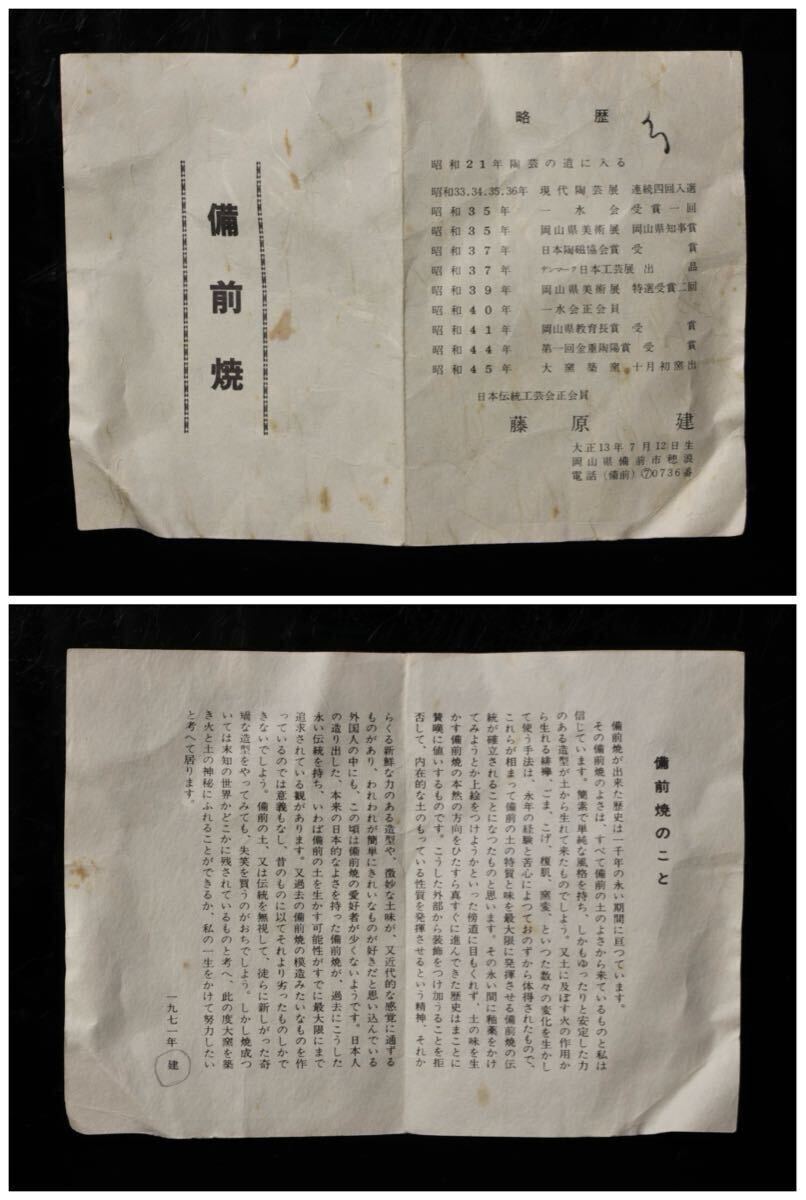 備前焼
略歴
昭和21年陶芸の道に入る
昭和33.34.35.36年 現代陶芸展 連続四回入選
昭和35年 一水会受賞一回
昭和35年 岡山県美術展 岡山県知事賞
昭和37年 日本陶磁協会賞 受賞
昭和37年 デンマーク日本工芸展 出品
昭和39年 岡山県美術展 特選受賞二回
昭和40年 一水会正会員
昭和41年 岡山県教育長賞 受賞
昭和44年 第一回金重陶陽賞 受賞
昭和45年 大窯築窯 十月初窯出
日本伝統工芸会正会員
藤原建
大正13年7月12日生
岡山県備前市穂浪
電話(備前)⑦0736番
備前焼のこと
備前焼が出来た歴史は一千年の永い期間に亘つています。
その備前焼のよさは、すべて備前の土のよさから来ているものと私は
信じています。簡素で単純な風格を持ち、しかもゆったりと安定した力
のある造型が土から生れて来たものでしよう。又土に及ぼす火の作用か
ら生れる緋襷、ごま、こげ、榎肌、窯変、といつた数々の変化を生かし
て使う手法は、永年の経験と苦心によっておのずから体得されたもので、
これらが相まって備前の土の特質と味を最大限に発揮させる備前焼の伝
統が確立されることになつたものと思います。その永い間に釉薬をかけ
てみようとか上絵をつけようかといった傍道に目もくれず、土の味を生
かす備前焼の本然の方向をひたすら真すぐに進んできた歴史はまことに
賛嘆に値いするものです。こうした外部から装飾をつけ加うることを拒
否して、内在的な土のもっている性質を発揮させるという精神、それか
らくる新鮮な力のある造型や、微妙な土味が、又近代的な感覚に通ずる
ものがあり、われわれが簡単にきれいなものが好きだと思い込んでいる
外国人の中にも、この頃は備前焼の愛好者が少くないようです。日本人
の造り出した、本来の日本的なよさを持った備前焼が、過去にこうした
永い伝統を持ち、いわば備前の土を生かす可能性がすでに最大限にまで
追求されている観があります。又過去の備前焼の模造みたいなものを作
っているのでは意義もなし、昔のものに以てそれより劣ったものしかで
きないでしよう。備前の土、又は伝統を無視して、徒らに新しがった奇
矯な造型をやってみても、失笑を買うのがおちでしよう。しかし焼成つ
いては末知の世界かどこかに残されているものと考へ、此の度大窯を築
き火と土の神秘にふれることができるか、私の一生をかけて努力したい
と考へて居ります。
一九七一年 建